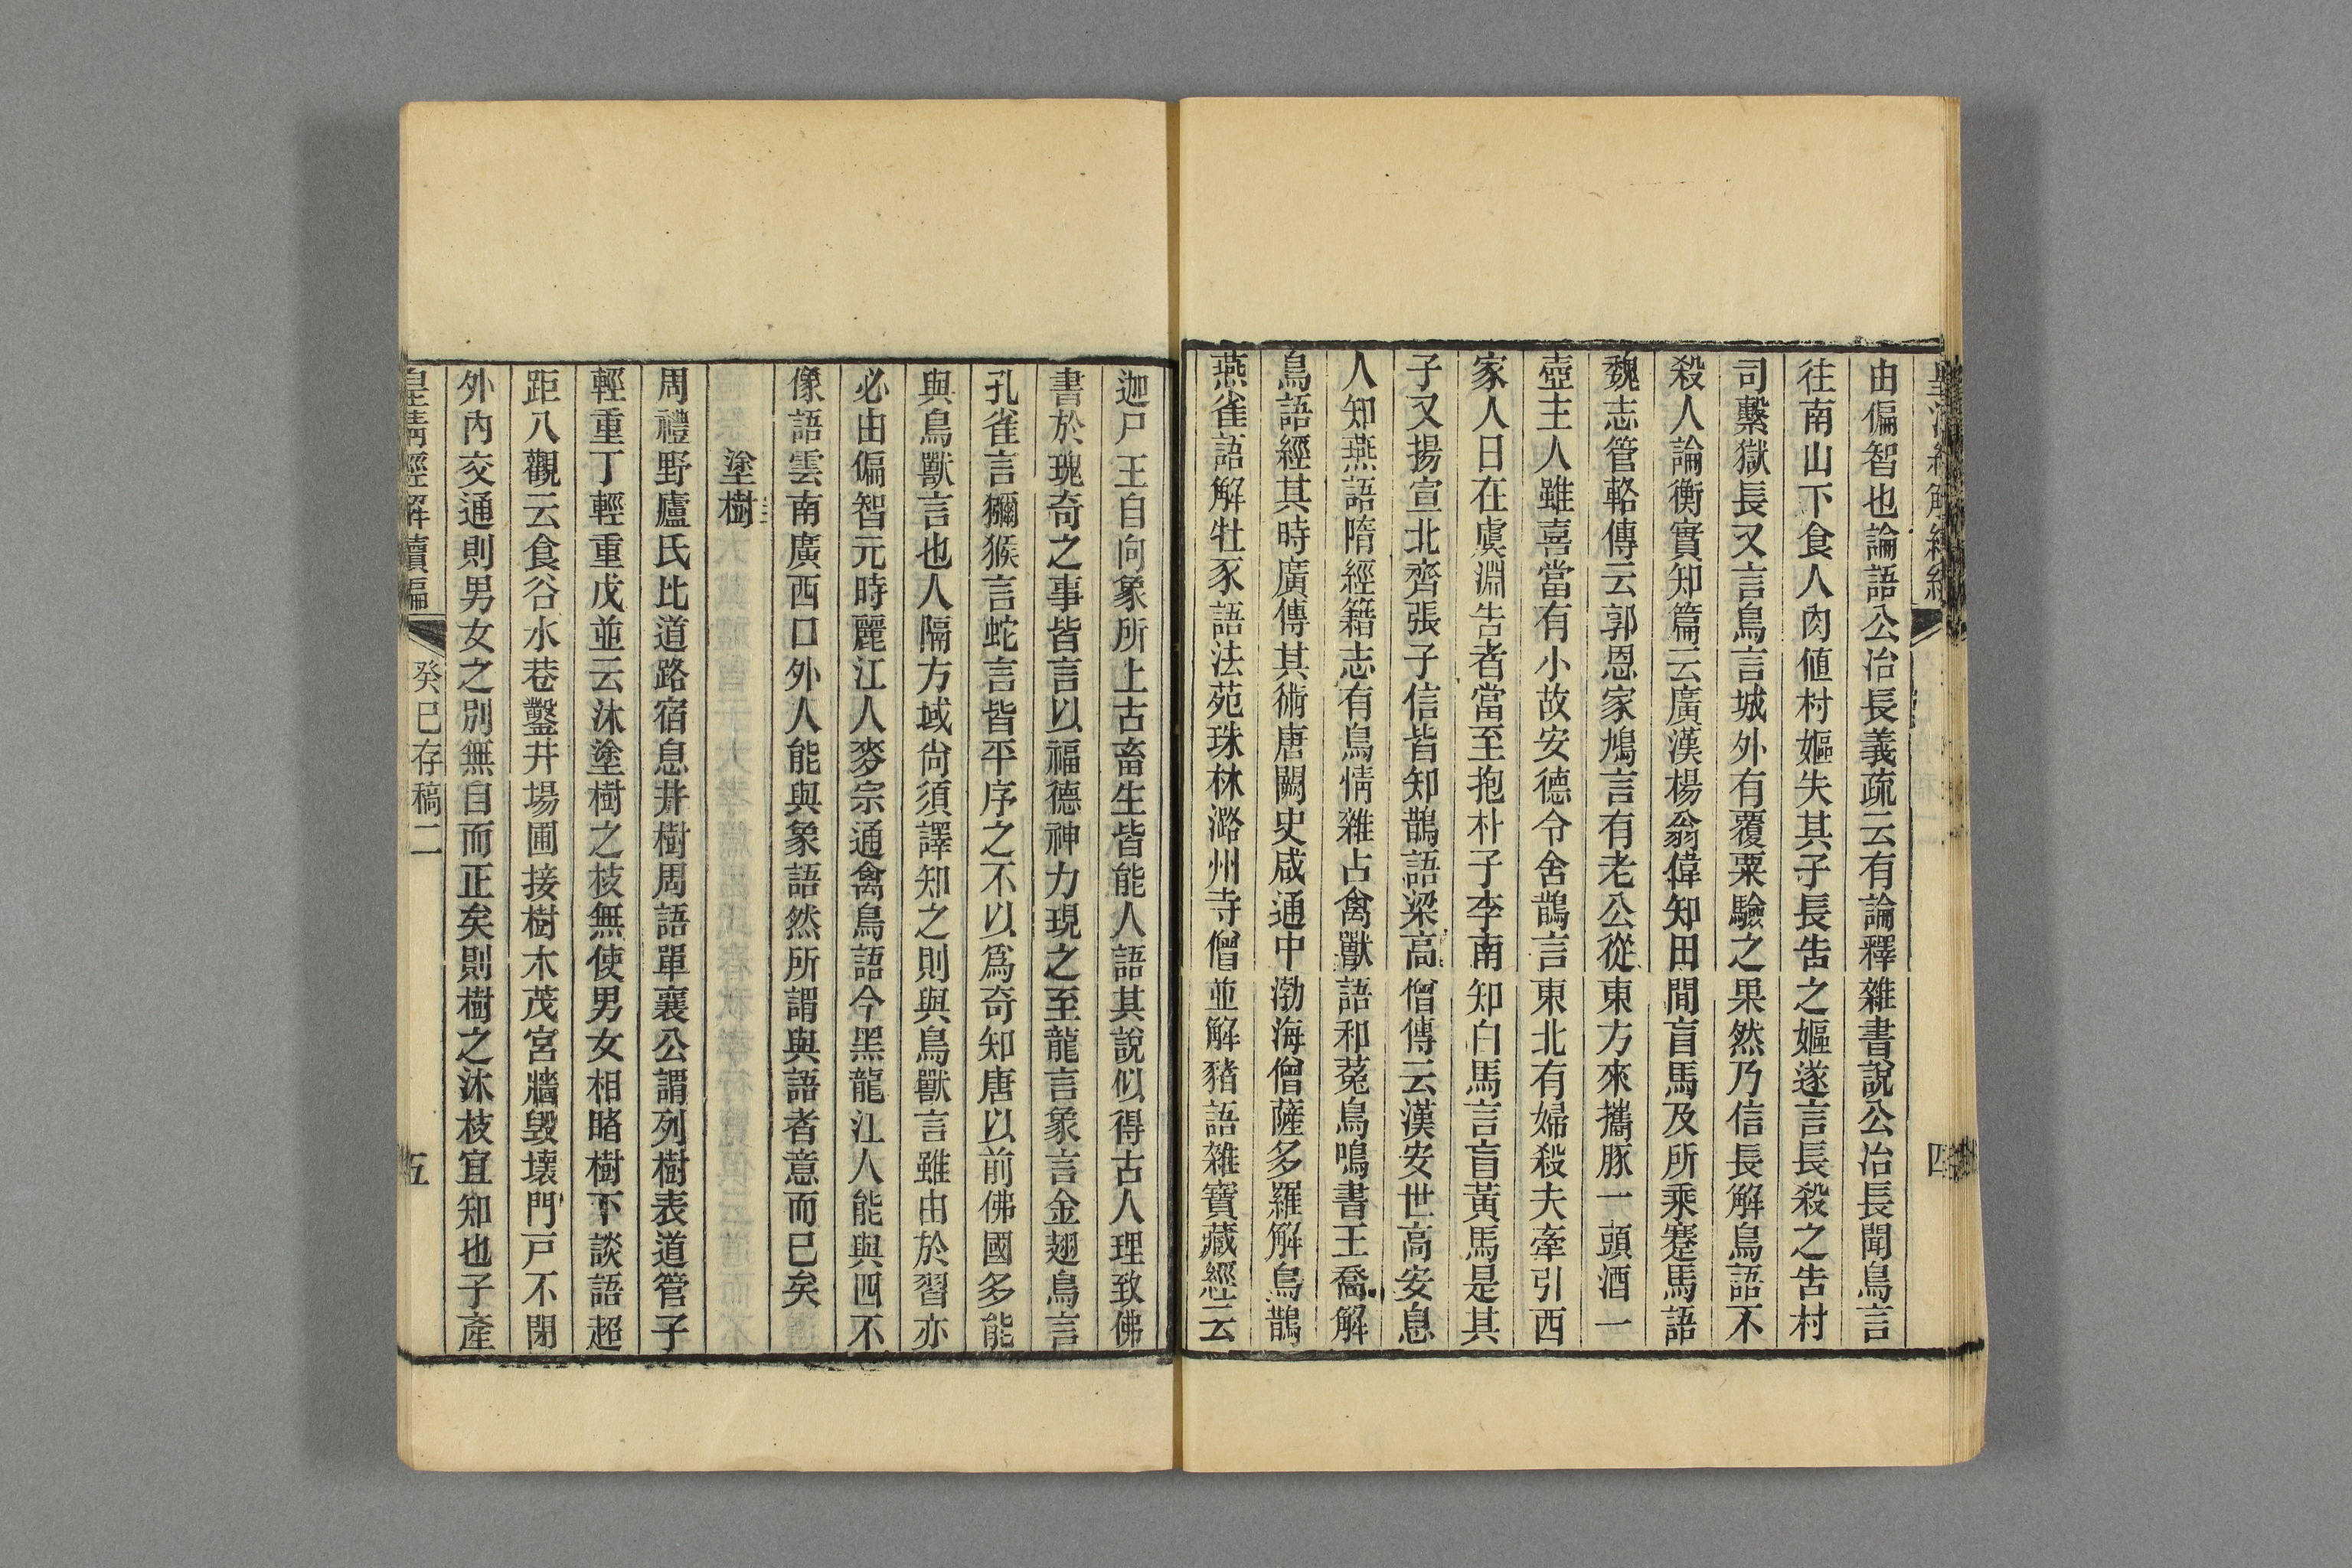 由偏智也論語公冶長義疏云有論釋雜書說公冶長聞鳥言
往南山下食人肉値村嫗失其子長吿之嫗遂言長殺之吿村
司繫獄長又言鳥言城外有覆粟驗之果然乃信長解鳥語不
殺人論衡實知篇云廣漢楊翁偉知田閒盲馬及所乘蹇馬語
魏志管輅傳云郭恩家鳩言有老公從東方來攜豚一頭酒一
壺主人雖喜當有小故安德令舍鵲言東北有婦殺夫牽引西
家人日在虞淵吿者當至抱朴子李南知白馬言盲黃馬是其
子又揚宣北齊張子信皆知鵲語梁高僧傳云漢安世高安息
人知燕語隋經籍志有鳥情雜占禽獸語和菟鳥鳴書王喬解
鳥語經其時廣傳其術唐闕史咸通中渤海僧薩多羅解鳥鵲
燕雀語解牡豕語法苑珠林潞州寺僧並解豬語雜寶藏經云
迦尸王自向象所上古畜生皆能人語其說似得古人理致佛
書於瑰奇之事皆言以福德神力現之至龍言象言金翅鳥言
孔雀言獼猴言蛇言皆平序之不以爲奇知唐以前佛國多能
與鳥獸言也人隔方域尙須譯知之則與鳥獸言雖由於習亦
必由偏智元時麗江人麥宗通禽鳥語今黑龍江人能與四不
像語雲南廣西口外人能與象語然所謂與語者意而已矣
塗樹
周禮野廬氏比道路宿息井樹周語單襄公謂列樹表道管子
輕重丁輕重戊並云沐塗樹之枝無使男女相睹樹下談語超
距八觀云食谷水巷鑿井場圃接樹木茂宮牆毀壞門戸不閉
外內交通則男女之別無自而正矣則樹之沐枝宜知也子產
皇淸經解續編 癸巳存稿二 五